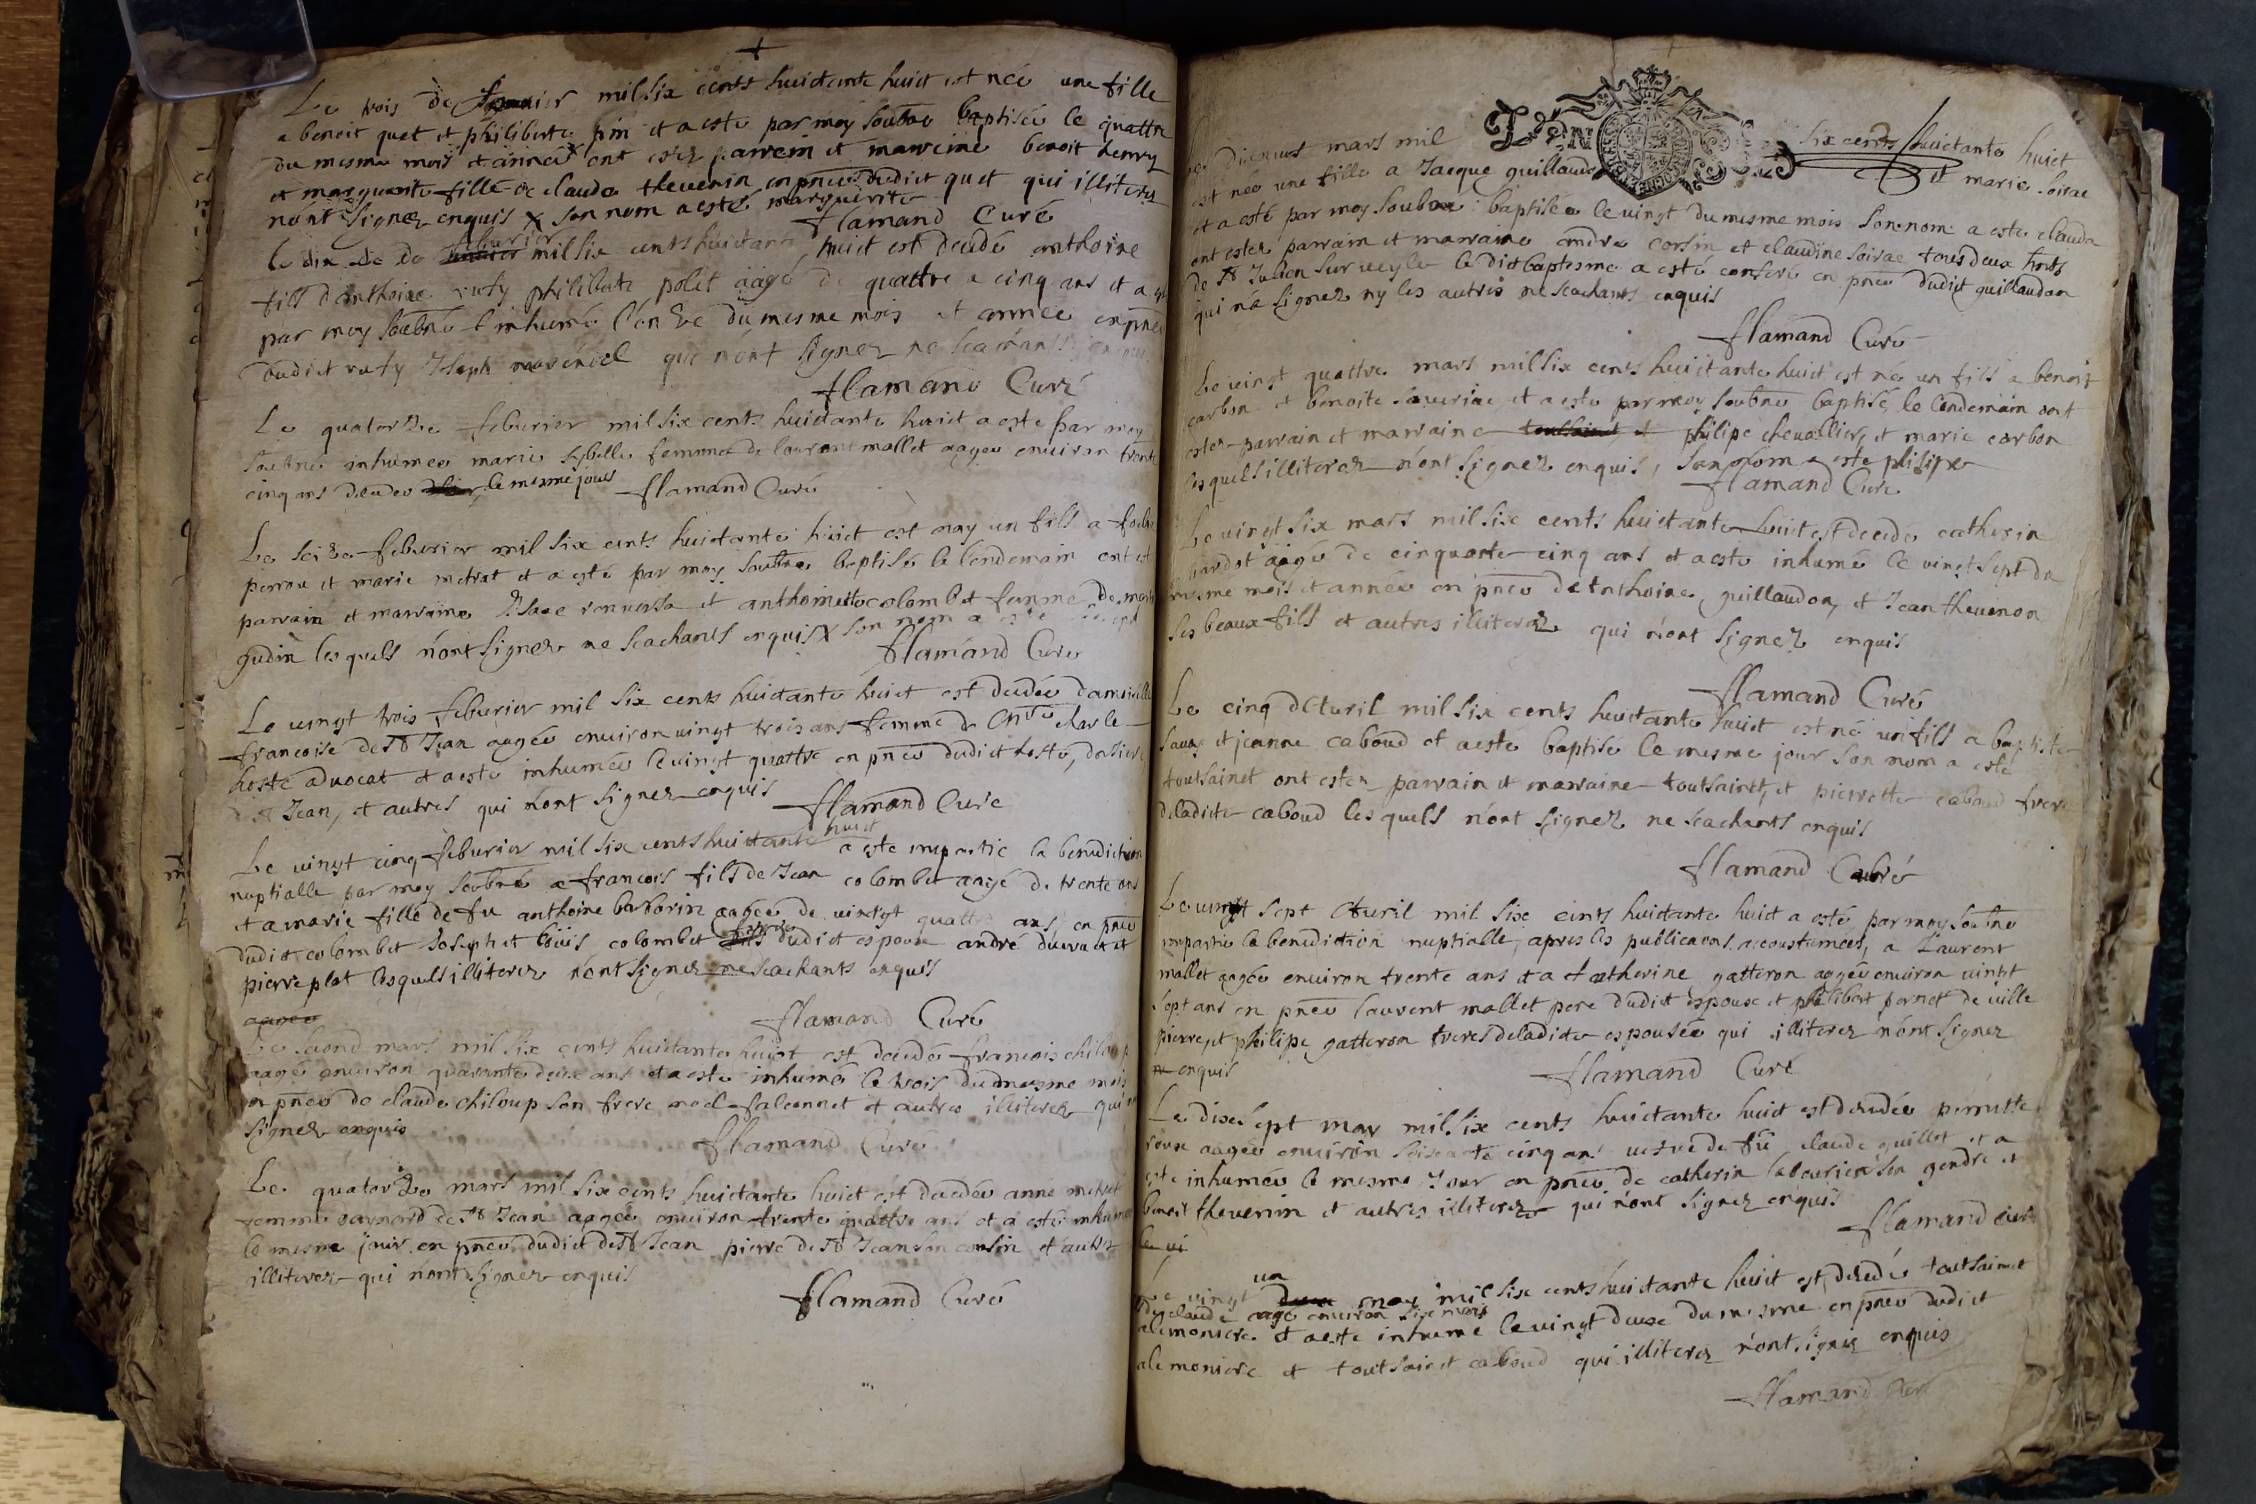 Le trois de mil six cents huictante huict est née une fille
a benoit quet et philiberte pin et a esté par moy soubné baptisée le quattre
du mesme mois et année ont ester parrein et marreine benoit henry
et marguerite fille de claude thevenin en pnce dudict quet qui illiterez
nont signez enquis X son nom a esté marguerite
flamand Curé
le dix de feburier mil six cents huictante huict est decedé anthoine
fils d'anthoine rufy philiberte polet aagé de quattre a cinq ans et a
par moy soubné l'inhumé l'onze du mesme mois et année en pnce
dudict rufy Joseph qui n'ont signez ne scachants
flamand Curé
Le quatorze feburier mil six cents huictante huict a esté par moy
soubné inhumée marie sibelle femme de laurent mallet aagée environ trente
cinq ans decedée le mesme jour flamand Curé
Le seize feburier mil six cents huictante huict est nay un fils a
perrou et marie metrat et a esté par moy soubné baptisé le lendemain ont est
parrain et marraine Isaac et anthoinette colombet femme de
gudin lesquels n'ont signez ne scachants enquis X son nom a esté
flamand Curé
Le vingt trois feburier mil six cents huictante huict est decedée damoiselle
francoise de St Jean aagée environ vingt trois ans femme de charle
hosté advocat et a esté inhumée le vingt quattre en pnce dudict hosté,
de St Jean, et autres qui n'ont signez enquis flamand Curé
Le vingt cinq feburier mil six cents huictante huict a esté impartie la benediction
nuptialle par moy soubné a francois fils de Jean colombet aagé de trente ans
et a marie fille de fu anthoine barborin aagée de vingt quattre ans en pnce
dudict colombet Joseph et louis colombet freres dudict espoux andré et
pierre plat lesquels illiterez n'ont signez ne scachants enquis
aagée
flamand Curé
Le second mars mil six cents huictante huict est decedé francois chiloup
aagé environ quarante deux ans et a esté inhumé le trois du mesme mois
en pnce de claude chiloup son frere noel falconnet et autres illiterez qui
signez enquis
flamand Curé
Le quatorze mars mil six cents huictante huict est decedée anne metrat
femme de St Jean aagée environ trente quattre ans et a esté inhumée
le mesme jour en pnce dudict de St Jean pierre de St Jean son cousin et autres
illiterez qui n'ont signez enquis
flamand Curé
Le dixneuf mars mil six cents huictante huict
est née une fille a Jacque guillaudon et marie soirae
et a esté par moy soubné baptisée le vingt du mesme mois son nom a esté clauda
ont ester parrain et marraine andré corsin et claudine soirae tous deux
de St Julien sur veyle le dit baptesme a esté conferé en pnce dudict guillaudon
qui n'a signez ny les autres ne scachants enquis
flamand Curé
Le vingt quattre mars mil six cents huictante huict est né un fils a benoit
carbon et benoite saverine et a esté par moy soubné baptisé le lendemain ont
ester parrain et marraine toutsainct et philipe chevallier, et marie carbon
lesquels illiterez n'ont signez enquis, son nom a esté philipe
flamand Curé
Le vingt six mars mil six cents huictante huict est decedé catherin
bardot aagé de cinquante cinq ans et a esté inhumé le vingt sept du
mesme mois et année en pnce de anthoine guillaudon, et Jean thevenon
ses beaux fils et autres illiterez qui n'ont signez enquis
flamand Curé
Le cinq d'Avril mil six cents huictante huict est né un fils a baptiste
savey et jeanne caboud et a esté baptisé le mesme jour son nom a esté
toutsainct ont ester parrain et marraine toutsainct, et pierrette caboud frere
deladicte caboud lesquels n'ont signez ne scachants enquis
flamand Curé
Le vingt sept Avril mil six cents huictante huict a esté par moy soubné
impartie la benediction nuptialle, apres les publicaons accoustumées, a Laurent
mallet aagée environ trente ans et a catherine gatteron aagée environ vingt
sept ans en pnce laurent mallet pere dudict espoux et philibert fornet de ville
pierre et philipe gatteron freres deladicte espousée qui illiterez n'ont signez
ne enquis
flamand Curé
Le dixesept may mil six cents huictante huict est decedée perrette
rouse aagée environ soixante cinq ans vefve de fu claude guillot et a
esté inhumée le mesme jour en pnce de catherin labourier son gendre et
benoit thevenin et autres illiterez qui n'ont signez enquis
flamand Curé
le vi
Le vingt un may mil six cents huictante huict est decedé toutsainct
de claude aagé environ six mois
alemoniere et a esté inhumé le vingt deux du mesme en pnce dudict
alemoniere et toutsainct caboud qui illiterez n'ont signez enquis
flamand Curé